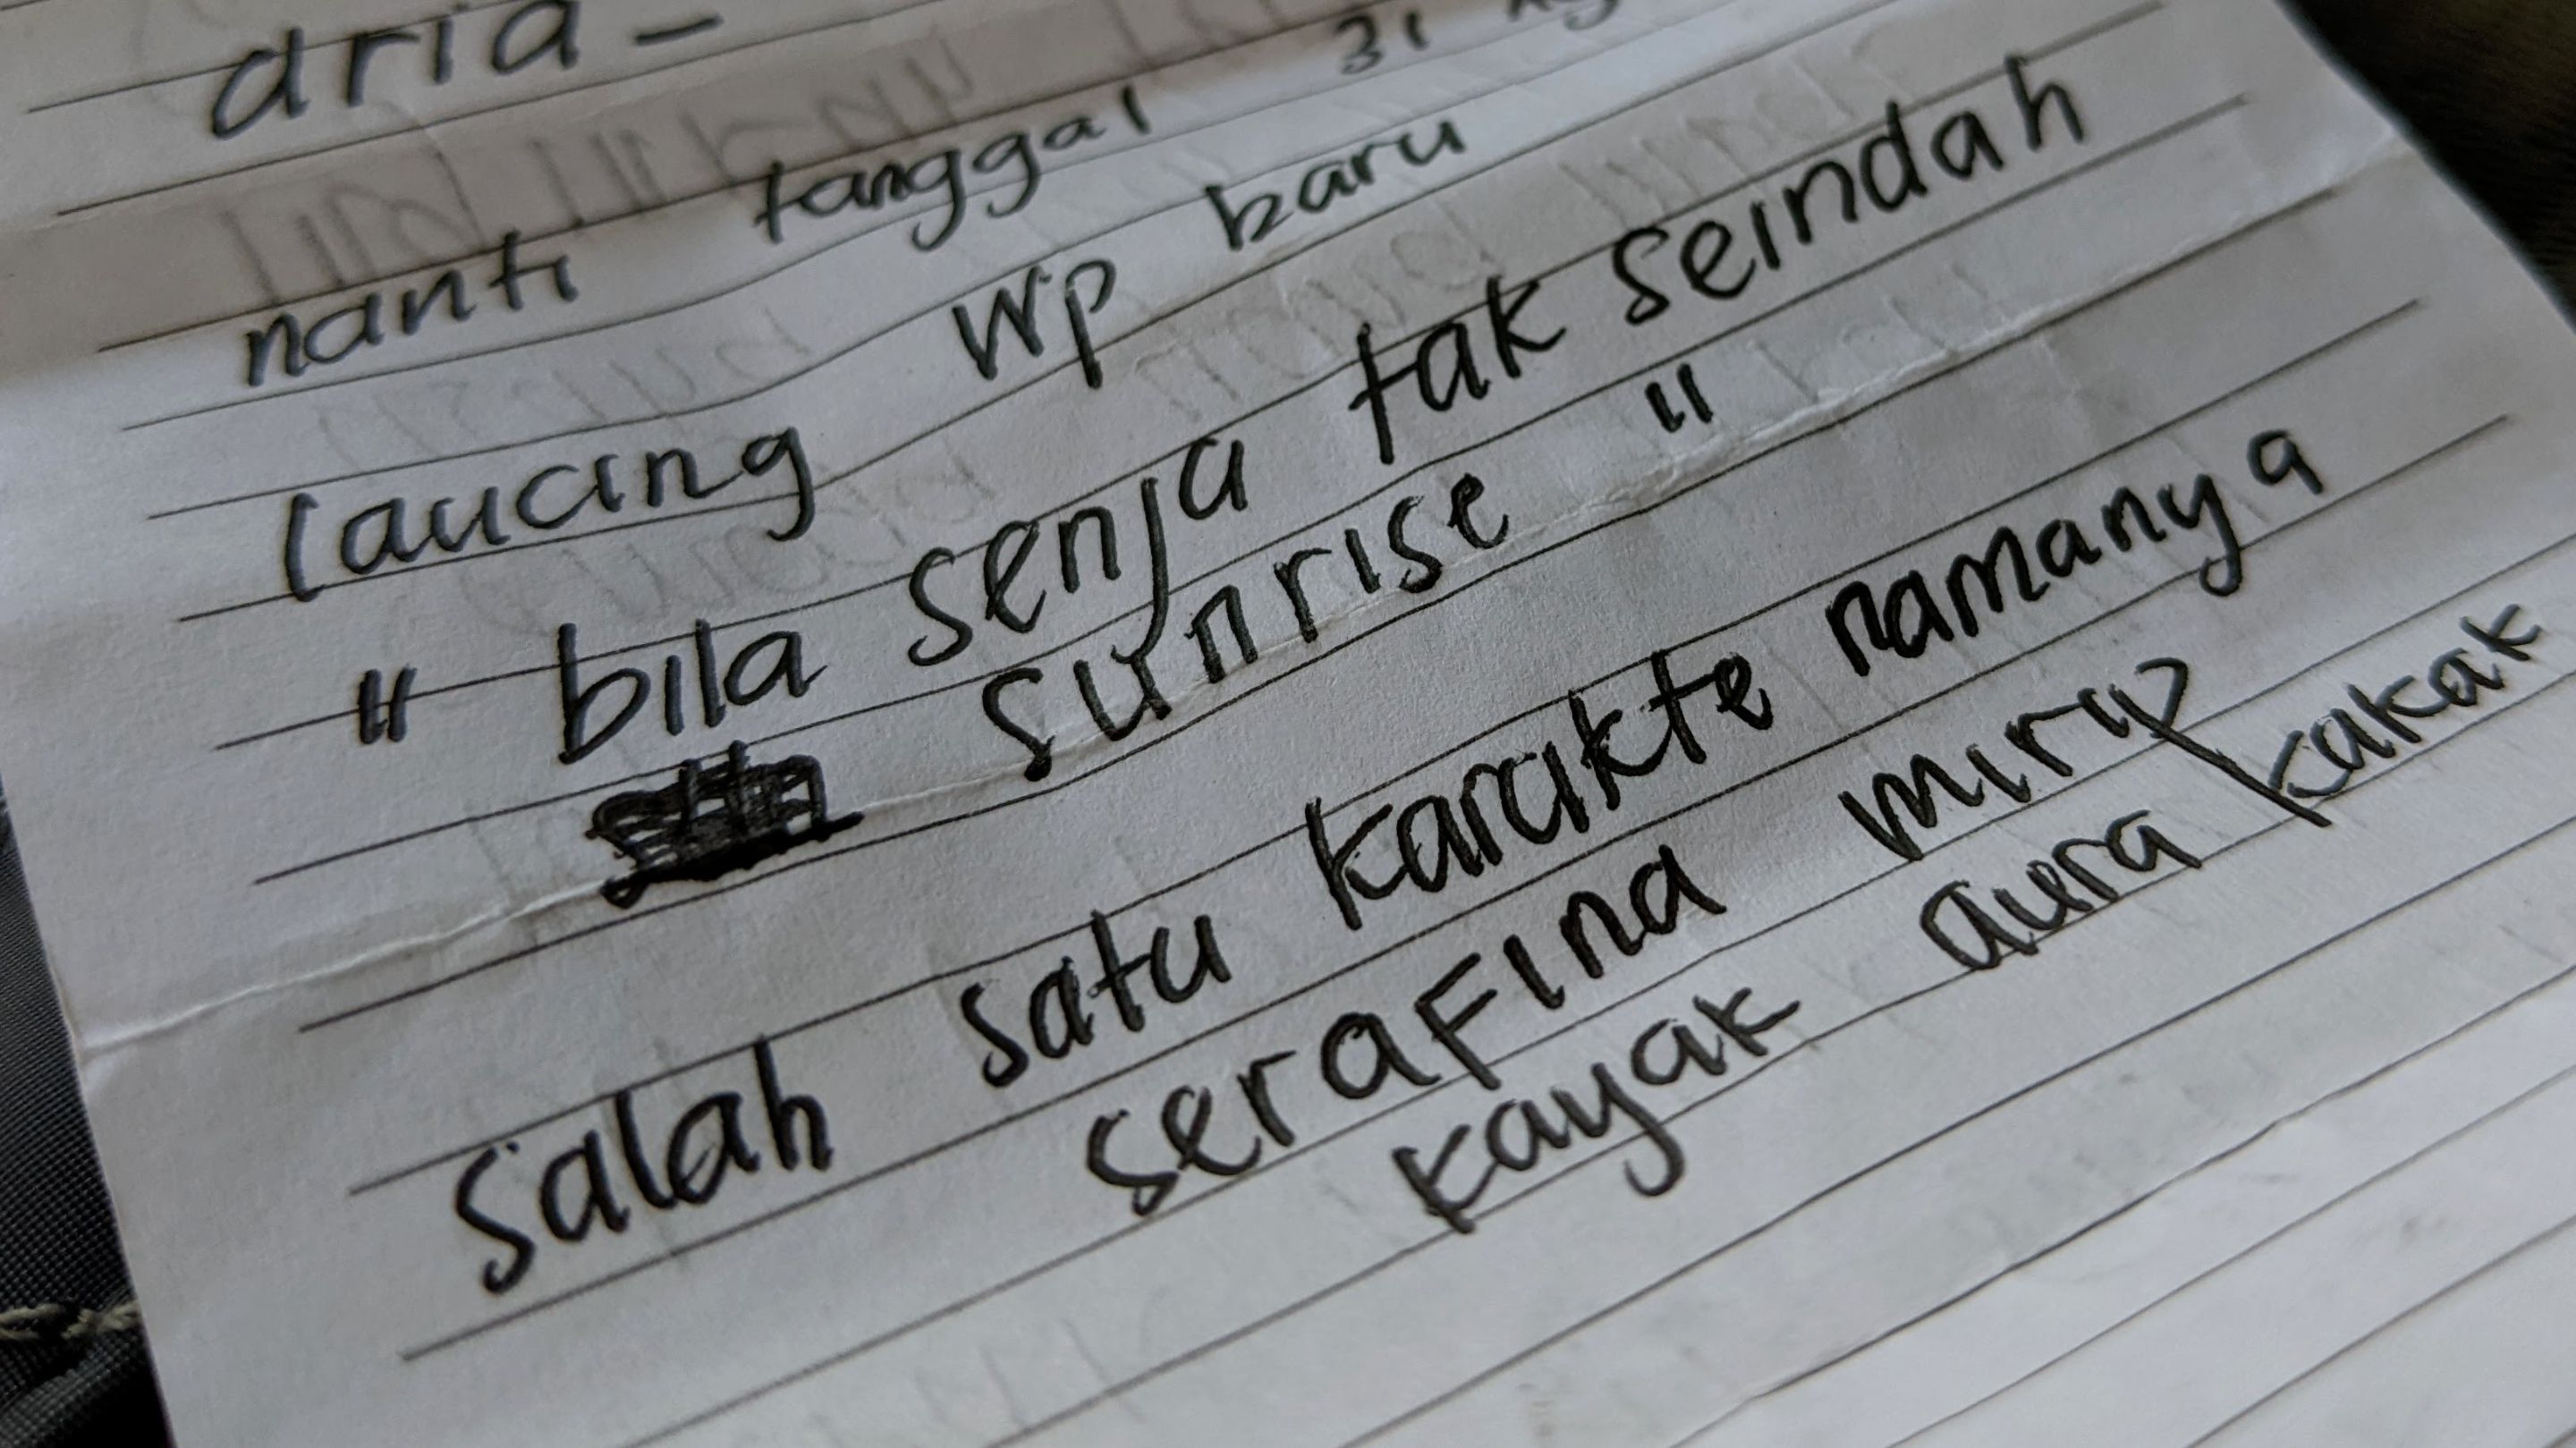 aria -
nanti tanggal 31
laucing wp baru
" bila senja tak seindah
sunrise "
salah satu karakte namanya
serafina mirip
kayak aura kakak